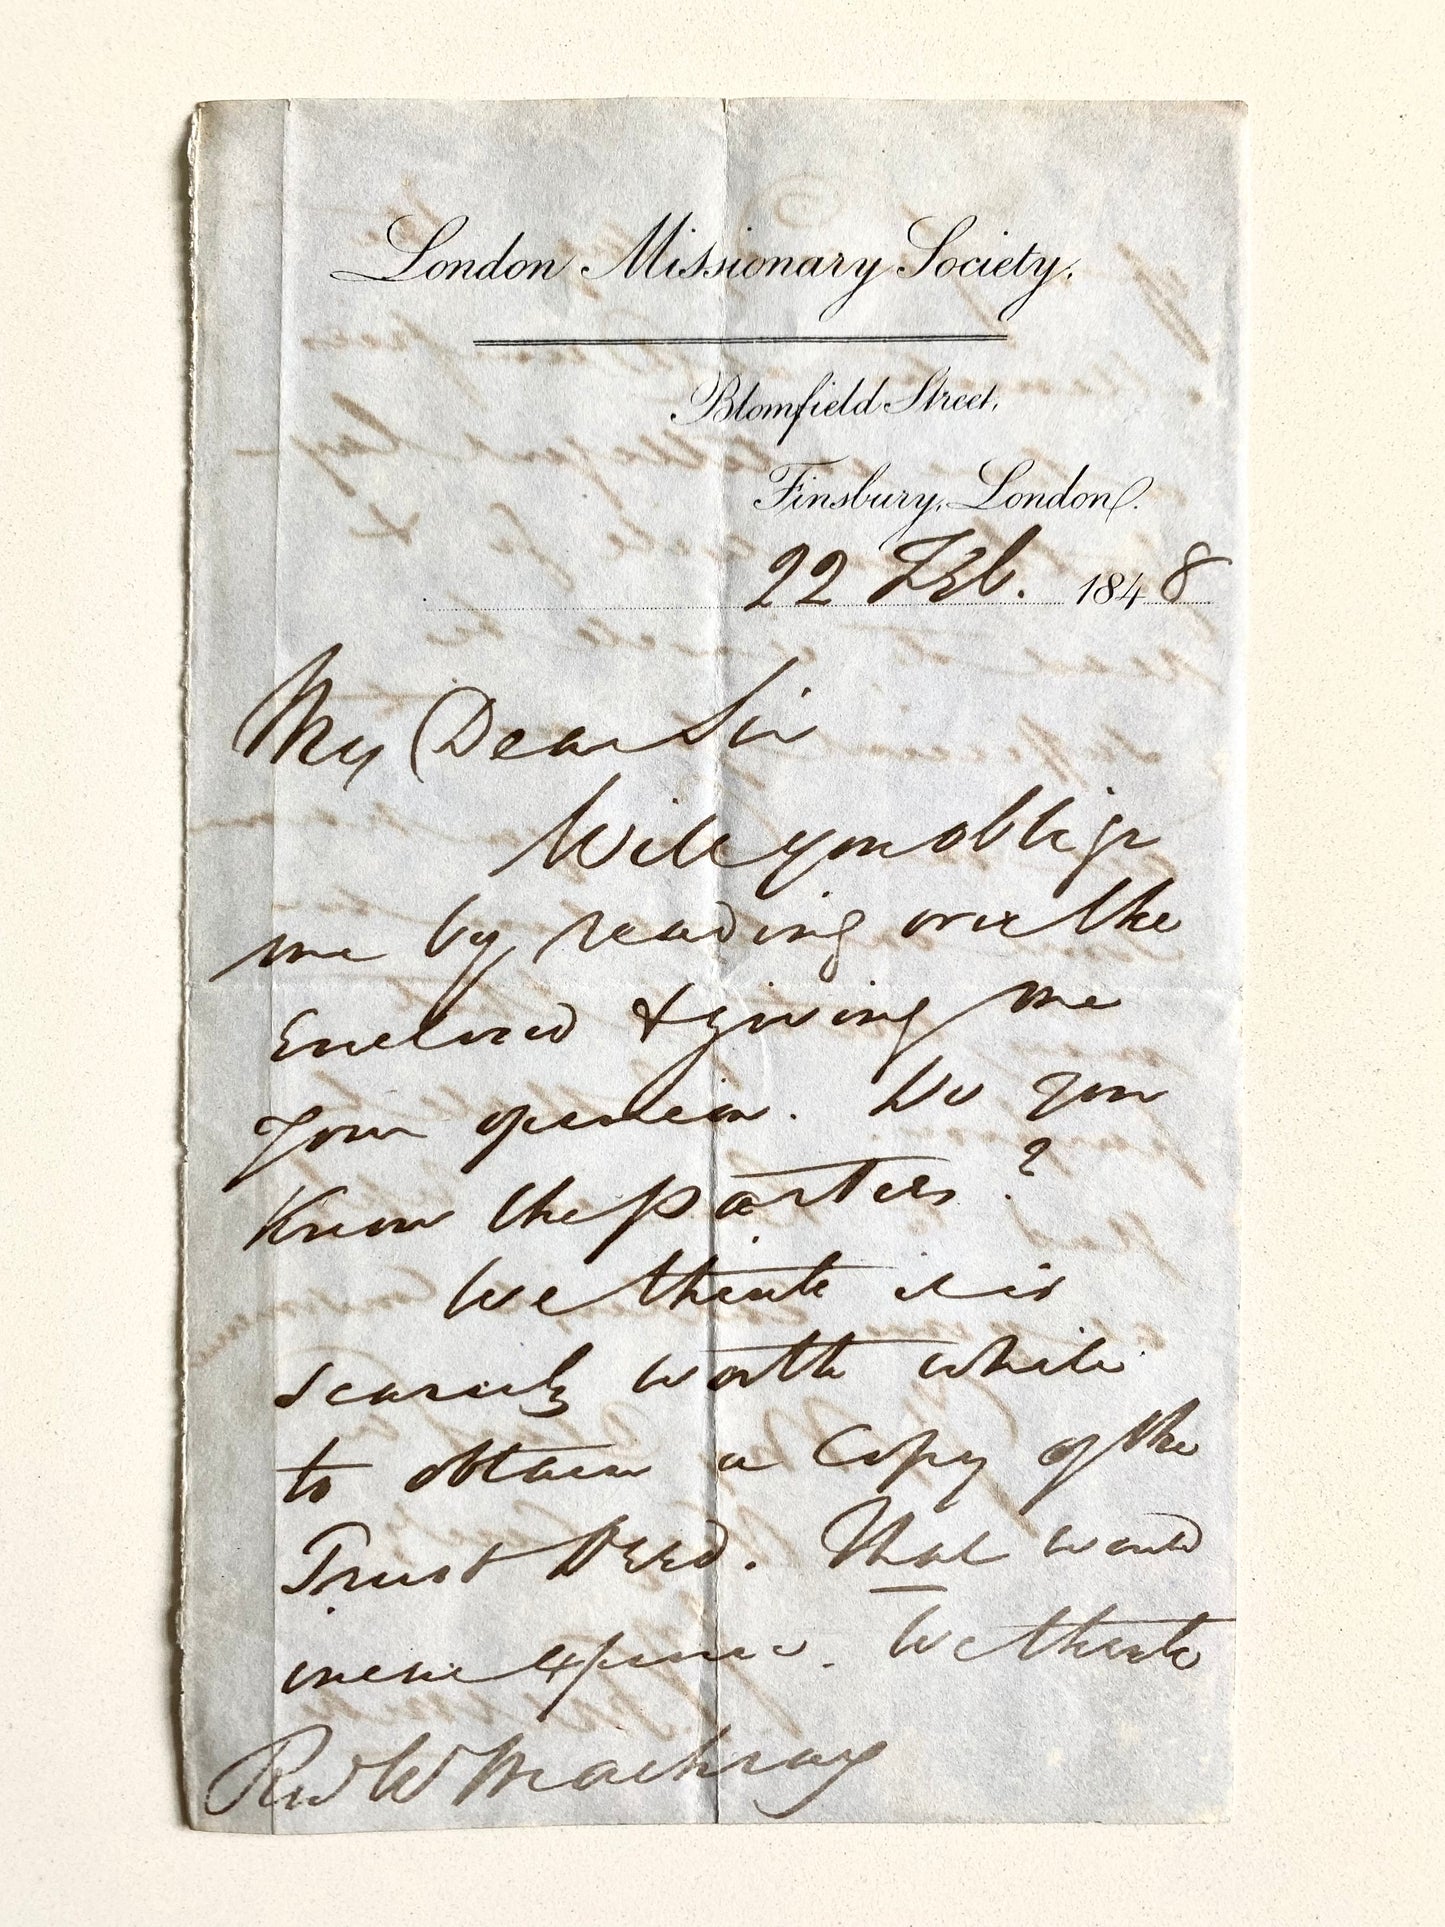 London Missionary Society.
Blomfield Street,
Finsbury, London.
22 Feb. 1848
My Dear Sir
Will you oblige
me by reading over the
Enclosed & giving me
your opinion. Do you
Know the parties?
We think it is
scarcely worth while
to obtain a Copy of the
Trust Deed. That would
incur expense. We think
Revd W Machray